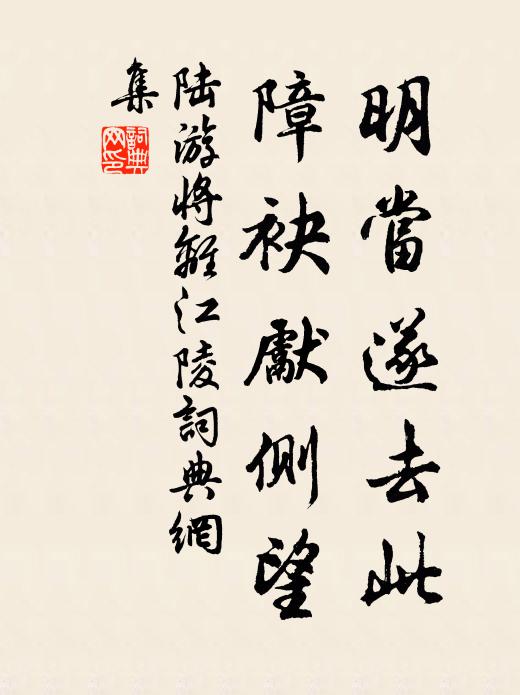 明當遂去此
障袂獻側望
陸游將離江陵詞典網
集
詞典
网印